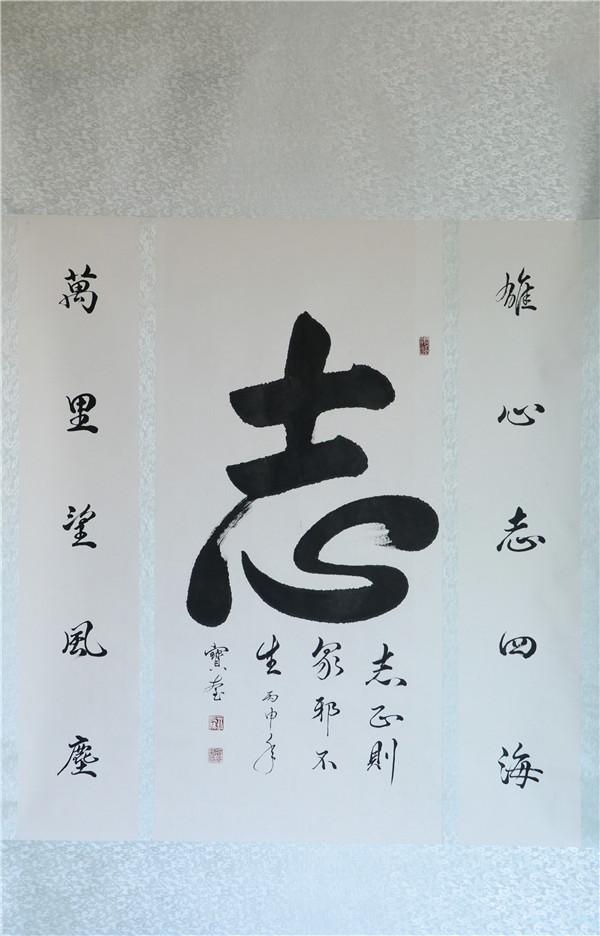 雄心志四海
志
志正則
眾邪不
生丙申年
寶奎
萬里望風塵